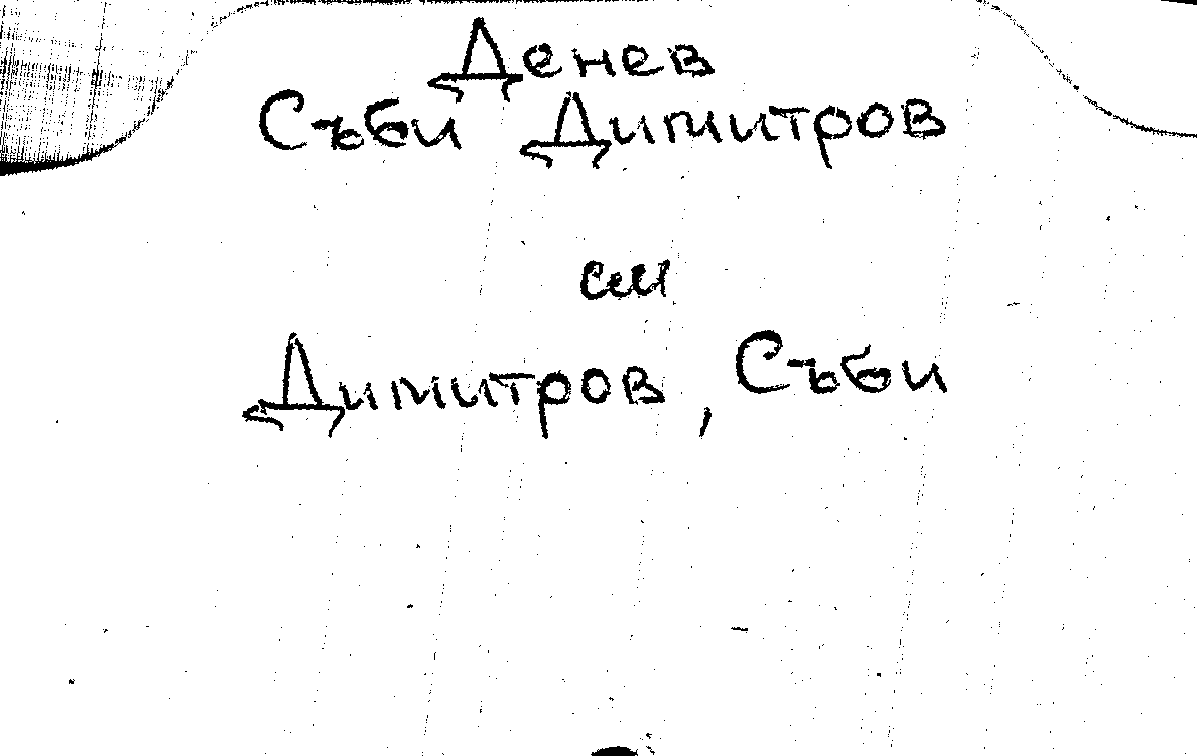 Денев
Съби Димитров
см
Димитров, Съби